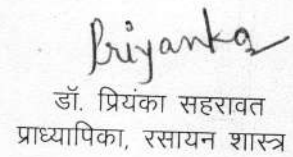 Priyanka
डॉ. प्रियंका सहरावत
प्राध्यापिका, रसायन शास्त्र